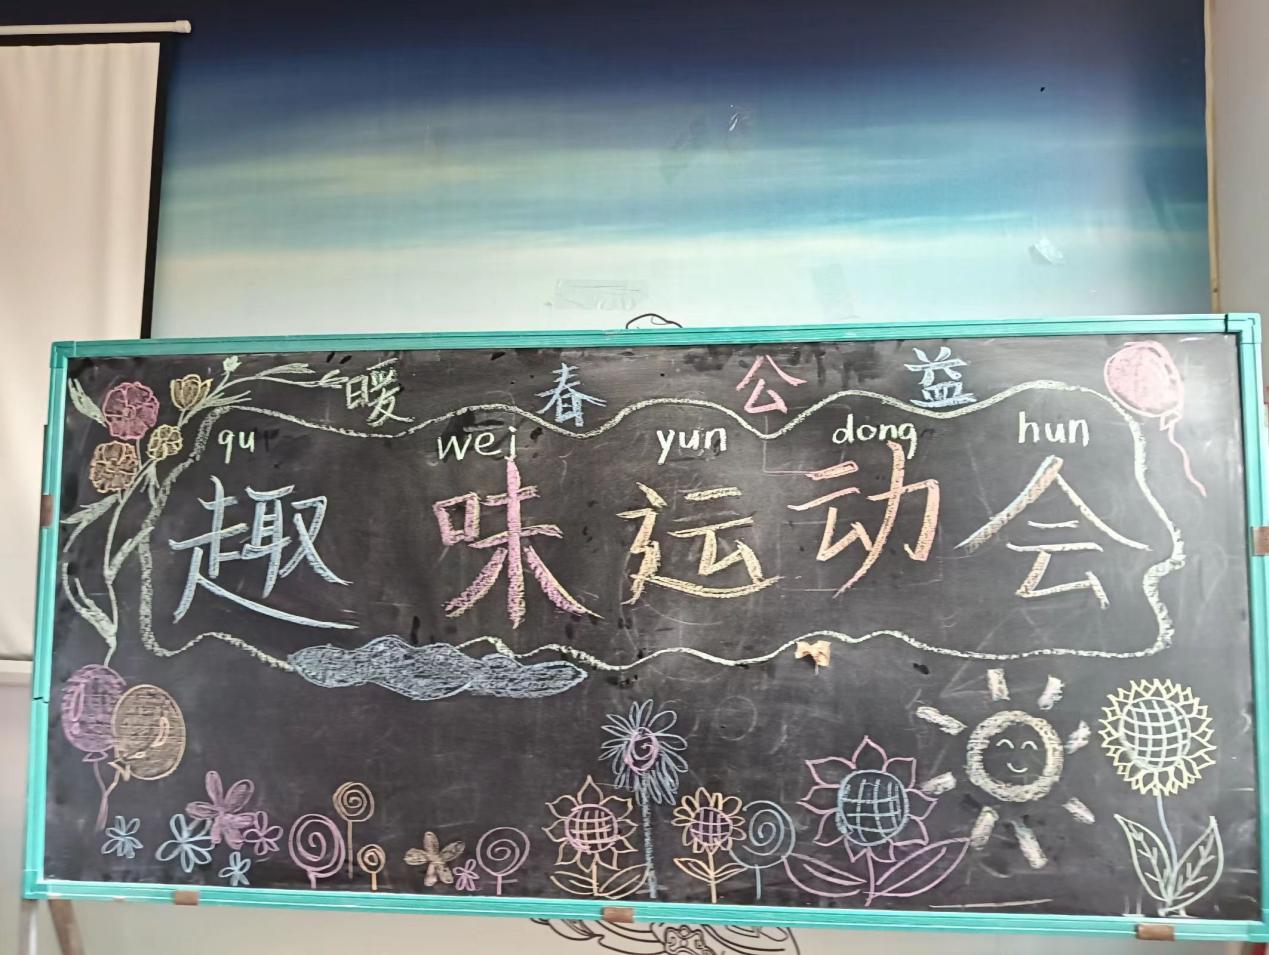 暖 春 公 益
qu wei yun dong hun
趣 味 运 动 会